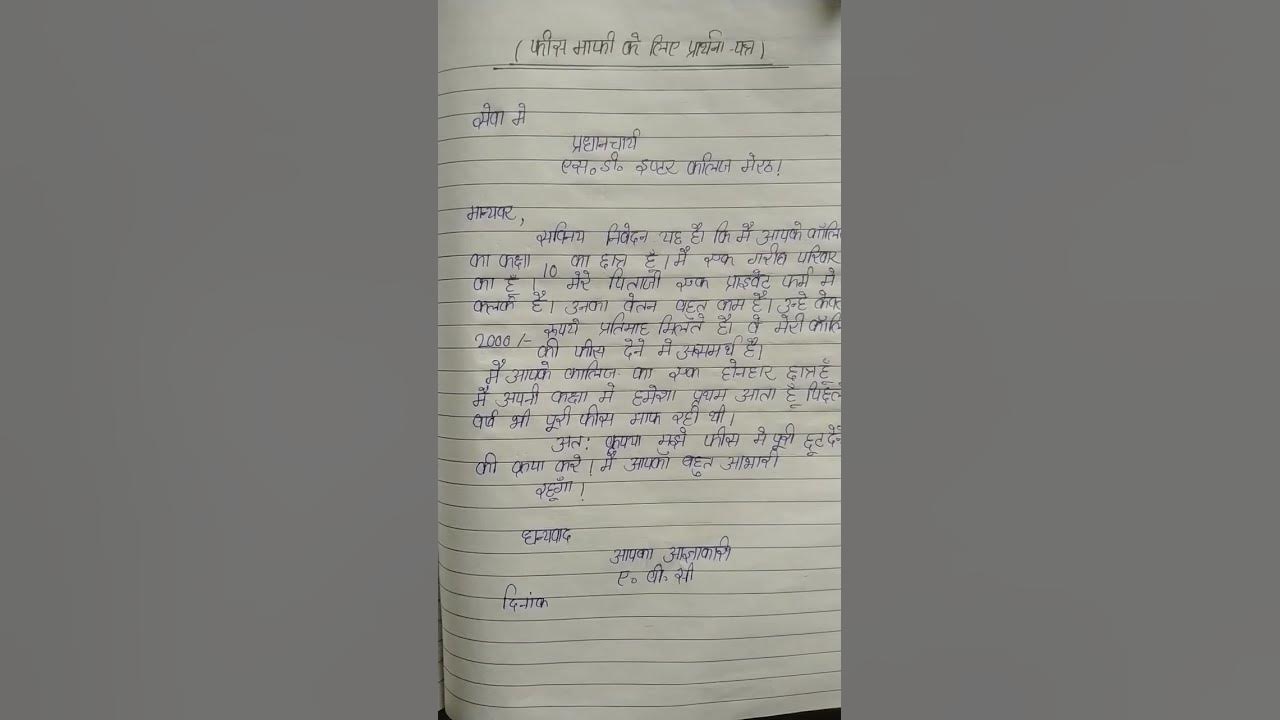 ( फीस माफी के लिए प्रार्थना-पत्र )
सेवा मे
प्रधानचार्य
एस॰ डी॰ इण्टर कालिज मेरठ।
मान्यवर,
सविनय निवेदन यह है। कि मैं आपके कॉलि
का कक्षा 10 का छात्र हूँ। मैं एक गरीब परिवार
का हूँ। मेरे पिताजी एक प्राइवेट फर्म मे
क्लर्क है। उनका वेतन बहुत कम है। उन्हे केवल
2000/- रूपये प्रतिमाह मिलते है। वे मेरी कॉलि
की फीस देने मे असमर्थ है।
मैं आपके कालिज का एक होनहार छात्र हूँ
मैं अपनी कक्षा मे हमेशा प्रथम आता हूँ पिछले
वर्ष भी पूरी फीस माफ रही थी।
अतः कृपया मुझे फीस मे पूरी छूट देने
की कृपा करे। मैं आपका बहुत आभारी
रहूँगा।
धन्यवाद
आपका आज्ञाकारी
ए॰ बी॰ सी
दिनांक